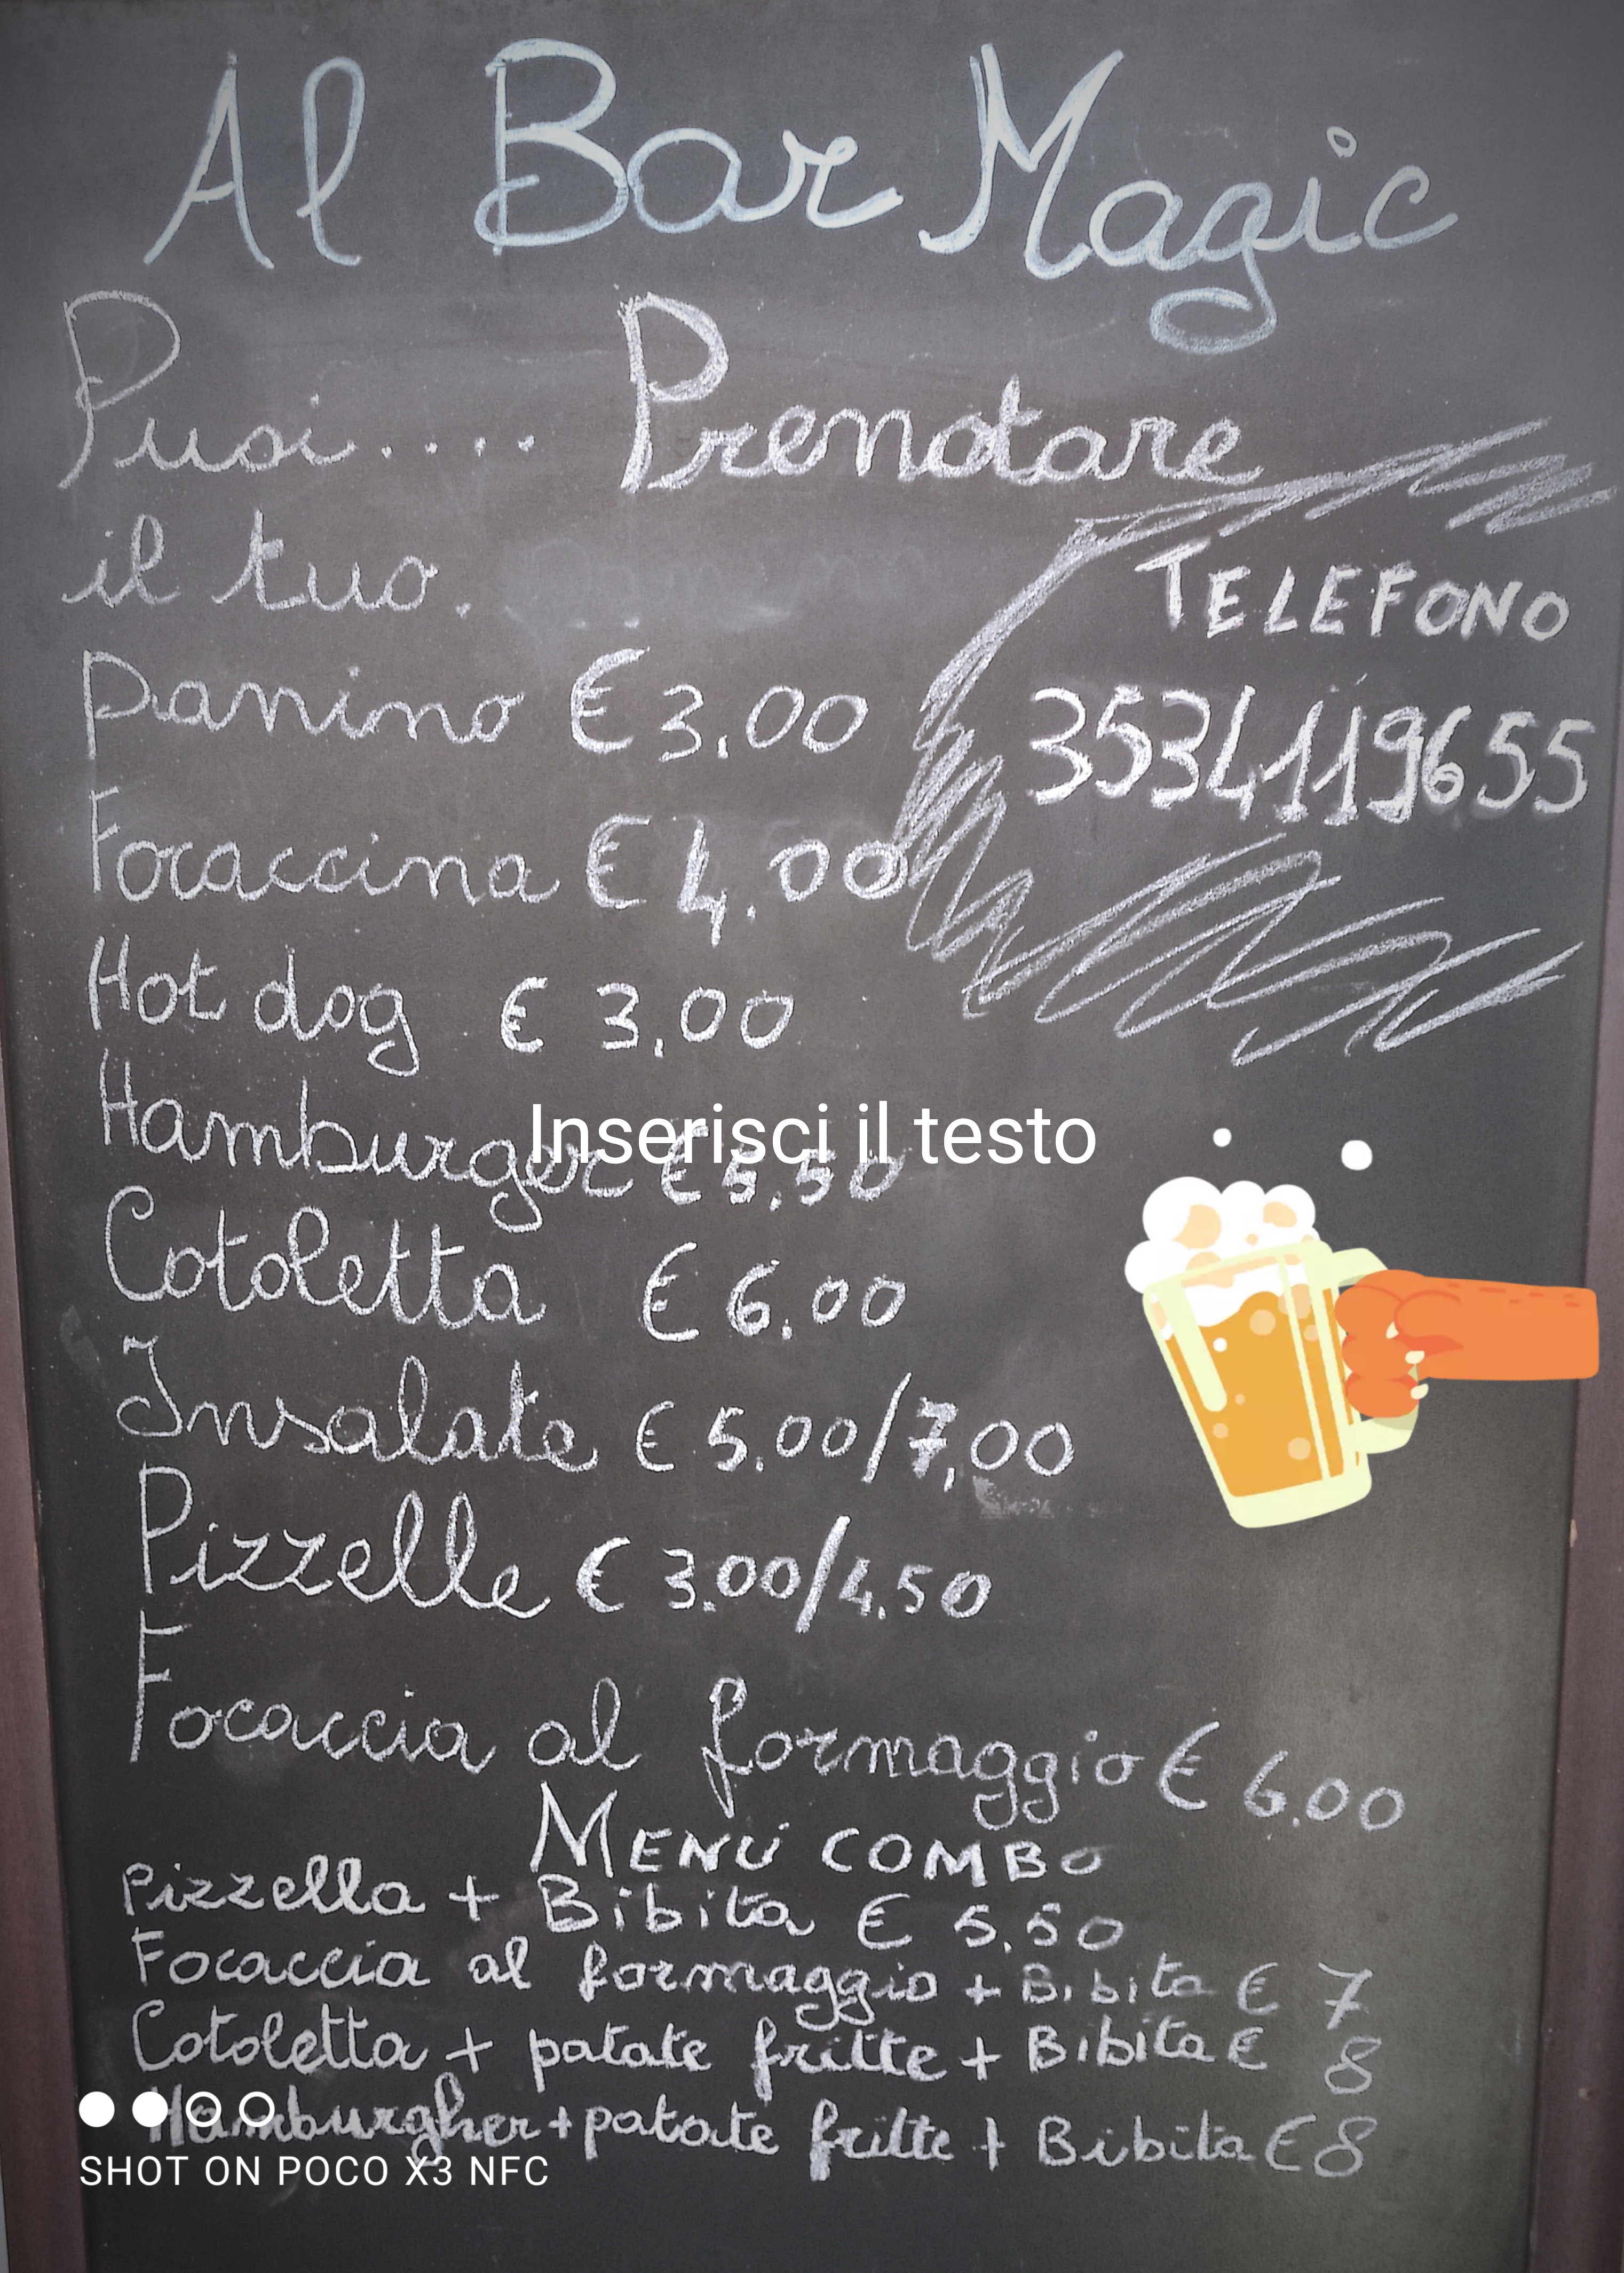 Al Bar Magic
Puoi.... Prenotare
il tuo.
TELEFONO
panino € 3,00
3534119655
Focaccina € 4,00
Hot dog € 3,00
Inserisci il testo
Hamburger € 5,50
Cotoletta € 6,00
Insalate € 5,00/7,00
Pizzelle € 3.00/4,50
Focaccia al formaggio € 6.00
MENÚ COMBO
Pizzella + Bibita € 5,50
Focaccia al formaggio + Bibita € 7
Cotoletta + patate fritte + Bibita € 8
Hamburgher + patate fritte + Bibita € 8
SHOT ON POCO X3 NFC